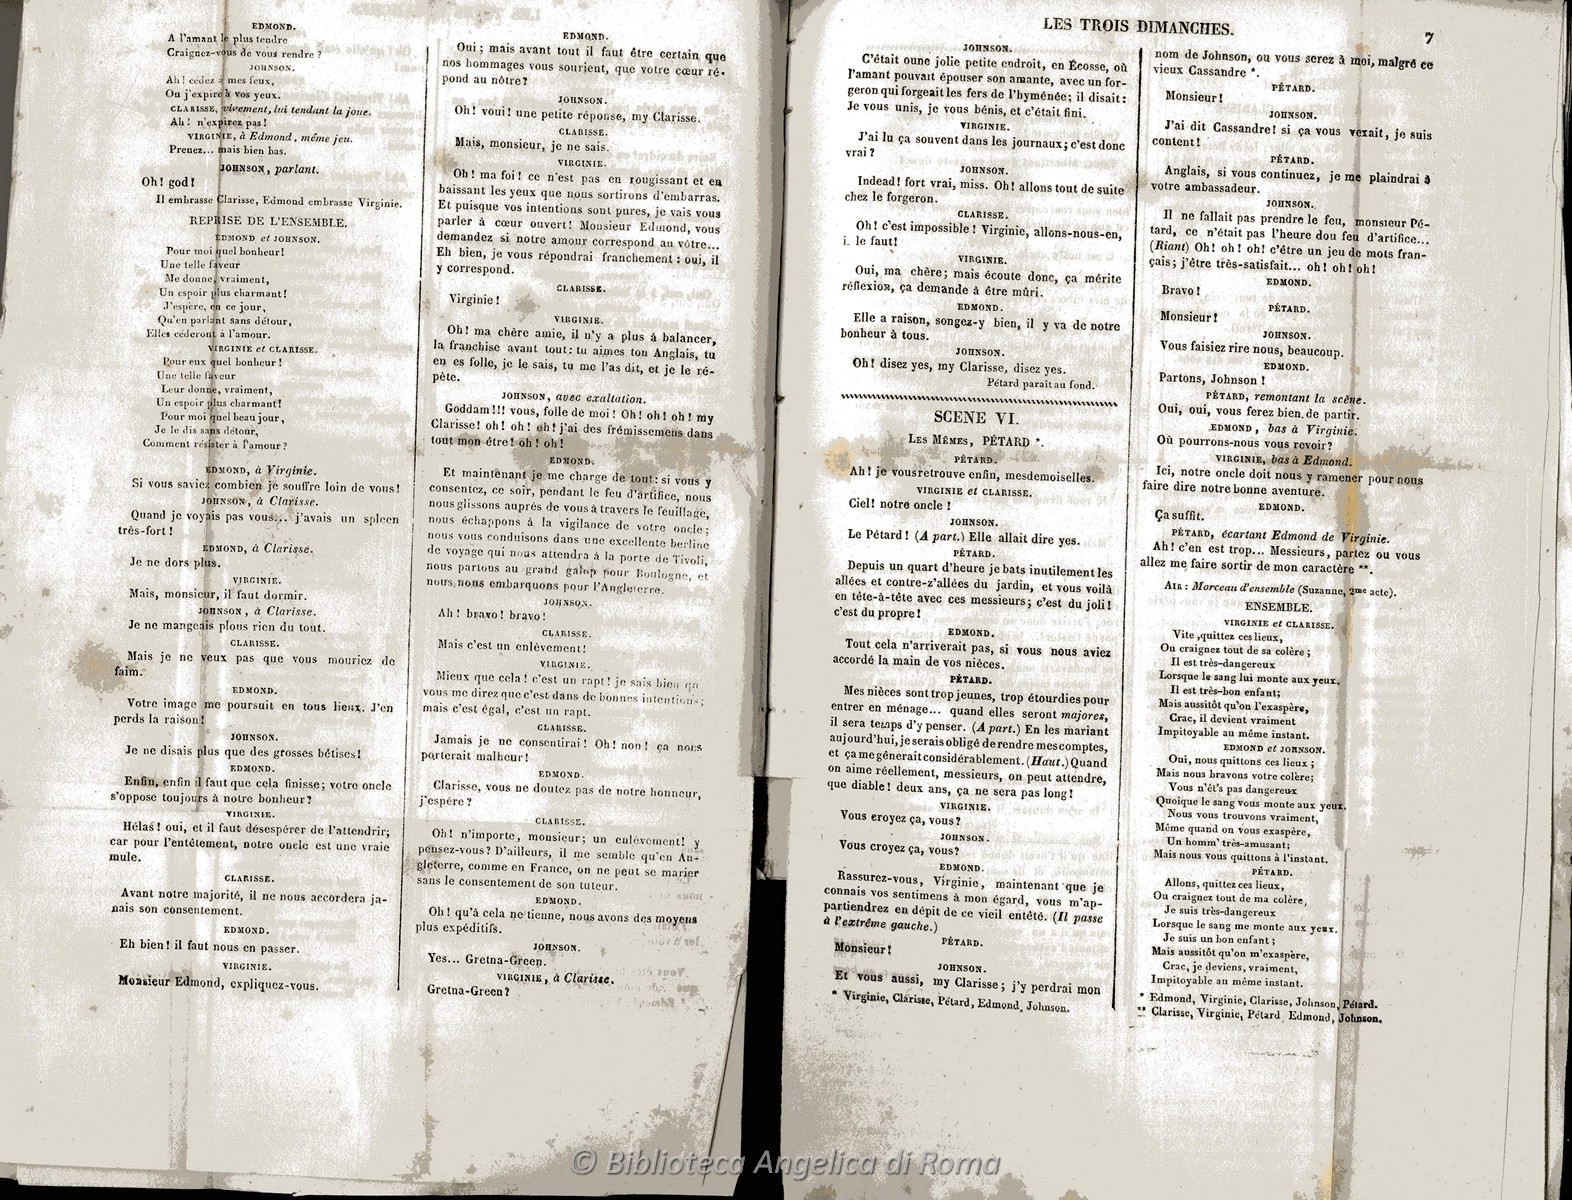 EDMOND.
A l'amant le plus tendre
Craignez-vous de vous rendre ?
JOHNSON.
Ah ! cédez à mes feux,
Ou j'expire à vos yeux.
CLARISSE, vivement, lui tendant la joue.
Ah ! n'expirez pas !
VIRGINIE, à Edmond, même jeu.
Prenez... mais bien bas.
JOHNSON, parlant.
Oh ! god !
Il embrasse Clarisse, Edmond embrasse Virginie.
REPRISE DE L'ENSEMBLE.
EDMOND et JOHNSON.
Pour moi quel bonheur !
Une telle faveur
Me donne, vraiment,
Un espoir plus charmant !
J'espère, en ce jour,
Qu'en parlant sans détour,
Elles céderont à l'amour.
VIRGINIE et CLARISSE.
Pour eux quel bonheur !
Une telle faveur
Leur donne, vraiment,
Un espoir plus charmant !
Pour moi quel beau jour,
Je le dis sans détour,
Comment résister à l'amour ?
EDMOND, à Virginie.
Si vous saviez combien je souffre loin de vous !
JOHNSON, à Clarisse.
Quand je voyais pas vous... j'avais un spleen
très-fort !
EDMOND, à Clarisse.
Je ne dors plus.
VIRGINIE.
Mais, monsieur, il faut dormir.
JOHNSON, à Clarisse.
Je ne mangeais plous rien du tout.
CLARISSE.
Mais je ne veux pas que vous mouriez de
faim.
EDMOND.
Votre image me poursuit en tous lieux. J'en
perds la raison !
JOHNSON.
Je ne disais plus que des grosses bêtises !
EDMOND.
Enfin, enfin il faut que cela finisse ; votre oncle
s'oppose toujours à notre bonheur ?
VIRGINIE.
Hélas ! oui, et il faut désespérer de l'attendrir ;
car pour l'entêtement, notre oncle est une vraie
mule.
CLARISSE.
Avant notre majorité, il ne nous accordera ja-
mais son consentement.
EDMOND.
Eh bien ! il faut nous en passer.
VIRGINIE.
Monsieur Edmond, expliquez-vous.
EDMOND.
Oui ; mais avant tout il faut être certain que
nos hommages vous sourient, que votre cœur ré-
pond au nôtre ?
JOHNSON.
Oh ! voui ! une petite réponse, my Clarisse.
CLARISSE.
Mais, monsieur, je ne sais.
VIRGINIE.
Oh ! ma foi ! ce n'est pas en rougissant et en
baissant les yeux que nous sortirons d'embarras.
Et puisque vos intentions sont pures, je vais vous
parler à cœur ouvert ! Monsieur Edmond, vous
demandez si notre amour correspond au vôtre...
Eh bien, je vous répondrai franchement : oui, il
y correspond.
CLARISSE.
Virginie !
VIRGINIE.
Oh ! ma chère amie, il n'y a plus à balancer,
la franchise avant tout : tu aimes ton Anglais, tu
en es folle, je le sais, tu me l'as dit, et je le ré-
pète.
JOHNSON, avec exaltation.
Goddam !!! vous, folle de moi ! Oh ! oh ! oh ! my
Clarisse ! oh ! oh ! oh ! j'ai des frémissemens dans
tout mon être ! oh ! oh !
EDMOND.
Et maintenant je me charge de tout : si vous y
consentez, ce soir, pendant le feu d'artifice, nous
nous glissons auprès de vous à travers le feuillage,
nous échappons à la vigilance de votre oncle ;
nous vous conduisons dans une excellente berline
de voyage qui nous attendra à la porte de Tivoli,
nous partons au grand galop pour Boulogne, et
nous nous embarquons pour l'Angleterre.
JOHNSON.
Ah ! bravo ! bravo !
CLARISSE.
Mais c'est un enlèvement !
VIRGINIE.
Mieux que cela ! c'est un rapt ! je sais bien qu
vous me direz que c'est dans de bonnes intentions ;
mais c'est égal, c'est un rapt.
CLARISSE.
Jamais je ne consentirai ! Oh ! non ! ça nous
porterait malheur !
EDMOND.
Clarisse, vous ne doutez pas de notre honneur,
j'espère ?
CLARISSE.
Oh ! n'importe, monsieur ; un enlèvement ! y
pensez-vous ? D'ailleurs, il me semble qu'en An-
gleterre, comme en France, on ne peut se marier
sans le consentement de son tuteur.
EDMOND.
Oh ! qu'à cela ne tienne, nous avons des moyens
plus expéditifs.
JOHNSON.
Yes... Gretna-Green.
VIRGINIE, à Clarisse.
Gretna-Green ?
LES TROIS DIMANCHES.
7
JOHNSON.
C'était oune jolie petite endroit, en Écosse, où
l'amant pouvait épouser son amante, avec un for-
geron qui forgeait les fers de l'hyménée ; il disait :
Je vous unis, je vous bénis, et c'était fini.
VIRGINIE.
J'ai lu ça souvent dans les journaux ; c'est donc
vrai ?
JOHNSON.
Indead ! fort vrai, miss. Oh ! allons tout de suite
chez le forgeron.
CLARISSE.
Oh ! c'est impossible ! Virginie, allons-nous-en,
i. le faut !
VIRGINIE.
Oui, ma chère ; mais écoute donc, ça mérite
réflexion, ça demande à être mûri.
EDMOND.
Elle a raison, songez-y bien, il y va de notre
bonheur à tous.
JOHNSON.
Oh ! disez yes, my Clarisse, disez yes.
Pétard paraît au fond.
SCENE VI.
LES MÊMES, PÉTARD *.
PÉTARD.
Ah ! je vous retrouve enfin, mesdemoiselles.
VIRGINIE et CLARISSE.
Ciel ! notre oncle !
JOHNSON.
Le Pétard ! (A part.) Elle allait dire yes.
PÉTARD.
Depuis un quart d'heure je bats inutilement les
allées et contre-z'allées du jardin, et vous voilà
en tête-à-tête avec ces messieurs ; c'est du joli !
c'est du propre !
EDMOND.
Tout cela n'arriverait pas, si vous nous aviez
accordé la main de vos nièces.
PÉTARD.
Mes nièces sont trop jeunes, trop étourdies pour
entrer en ménage... quand elles seront majores,
il sera temps d'y penser. (A part.) En les mariant
aujourd'hui, je serais obligé de rendre mes comptes,
et ça me gênerait considérablement. (Haut.) Quand
on aime réellement, messieurs, on peut attendre,
que diable ! deux ans, ça ne sera pas long !
VIRGINIE.
Vous croyez ça, vous ?
JOHNSON.
Vous croyez ça, vous ?
EDMOND.
Rassurez-vous, Virginie, maintenant que je
connais vos sentimens à mon égard, vous m'ap-
partiendrez en dépit de ce vieil entêté. (Il passe
à l'extrême gauche.)
PÉTARD.
Monsieur !
JOHNSON.
Et vous aussi, my Clarisse ; j'y perdrai mon
* Virginie, Clarisse, Pétard, Edmond, Johnson.
nom de Johnson, ou vous serez à moi, malgré ce
vieux Cassandre *.
PÉTARD.
Monsieur !
JOHNSON.
J'ai dit Cassandre ! si ça vous vexait, je suis
content !
PÉTARD.
Anglais, si vous continuez, je me plaindrai à
votre ambassadeur.
JOHNSON.
Il ne fallait pas prendre le feu, monsieur Pé-
tard, ce n'était pas l'heure dou feu d'artifice...
(Riant) Oh ! oh ! oh ! c'être un jeu de mots fran-
çais ; j'être très-satisfait... oh ! oh ! oh !
EDMOND.
Bravo !
PÉTARD.
Monsieur !
JOHNSON.
Vous faisiez rire nous, beaucoup.
EDMOND.
Partons, Johnson !
PÉTARD, remontant la scène.
Oui, oui, vous ferez bien de partir.
EDMOND, bas à Virginie.
Où pourrons-nous vous revoir ?
VIRGINIE, bas à Edmond.
Ici, notre oncle doit nous y ramener pour nous
faire dire notre bonne aventure.
EDMOND.
Ça suffit.
PÉTARD, écartant Edmond de Virginie.
Ah ! c'en est trop... Messieurs, partez ou vous
allez me faire sortir de mon caractère **.
AIR : Morceau d'ensemble (Suzanne, 2me acte).
ENSEMBLE.
VIRGINIE et CLARISSE.
Vite, quittez ces lieux,
Ou craignez tout de sa colère ;
Il est très-dangereux
Lorsque le sang lui monte aux yeux.
Il est très-bon enfant ;
Mais aussitôt qu'on l'exaspère,
Crac, il devient vraiment
Impitoyable au même instant.
EDMOND et JOHNSON.
Oui, nous quittons ces lieux ;
Mais nous bravons votre colère ;
Vous n'êt's pas dangereux
Quoique le sang vous monte aux yeux.
Nous vous trouvons vraiment,
Même quand on vous exaspère,
Un homm' très-amusant ;
Mais nous vous quittons à l'instant.
PÉTARD.
Allons, quittez ces lieux,
Ou craignez tout de ma colère,
Je suis très-dangereux
Lorsque le sang me monte aux yeux.
Je suis un bon enfant ;
Mais aussitôt qu'on m'exaspère,
Crac, je deviens, vraiment,
Impitoyable au même instant.
* Edmond, Virginie, Clarisse, Johnson, Pétard.
** Clarisse, Virginie, Pétard, Edmond, Johnson.
© Biblioteca Angelica di Roma